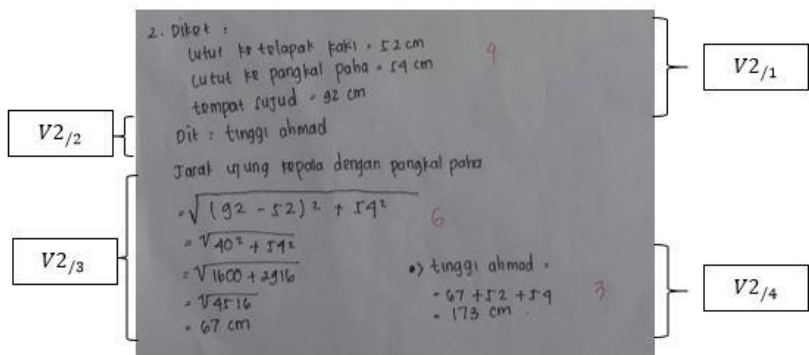 2. Diket :
lutut ke telapak kaki = 52 cm
lutut ke pangkal paha = 54 cm
tempat sujud = 92 cm
4
V2/1
Dit : tinggi ahmad
V2/2
Jarak ujung kepala dengan pangkal paha
= √(92 - 52)² + 54²
= √40² + 54²
= √1600 + 2916
= √4516
= 67 cm
6
V2/3
•) tinggi ahmad =
= 67 + 52 + 54
= 173 cm.
3
V2/4